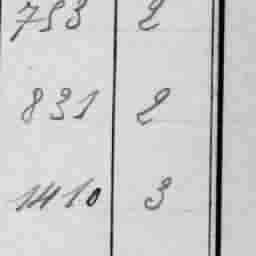 753 2
831 2
1410 3